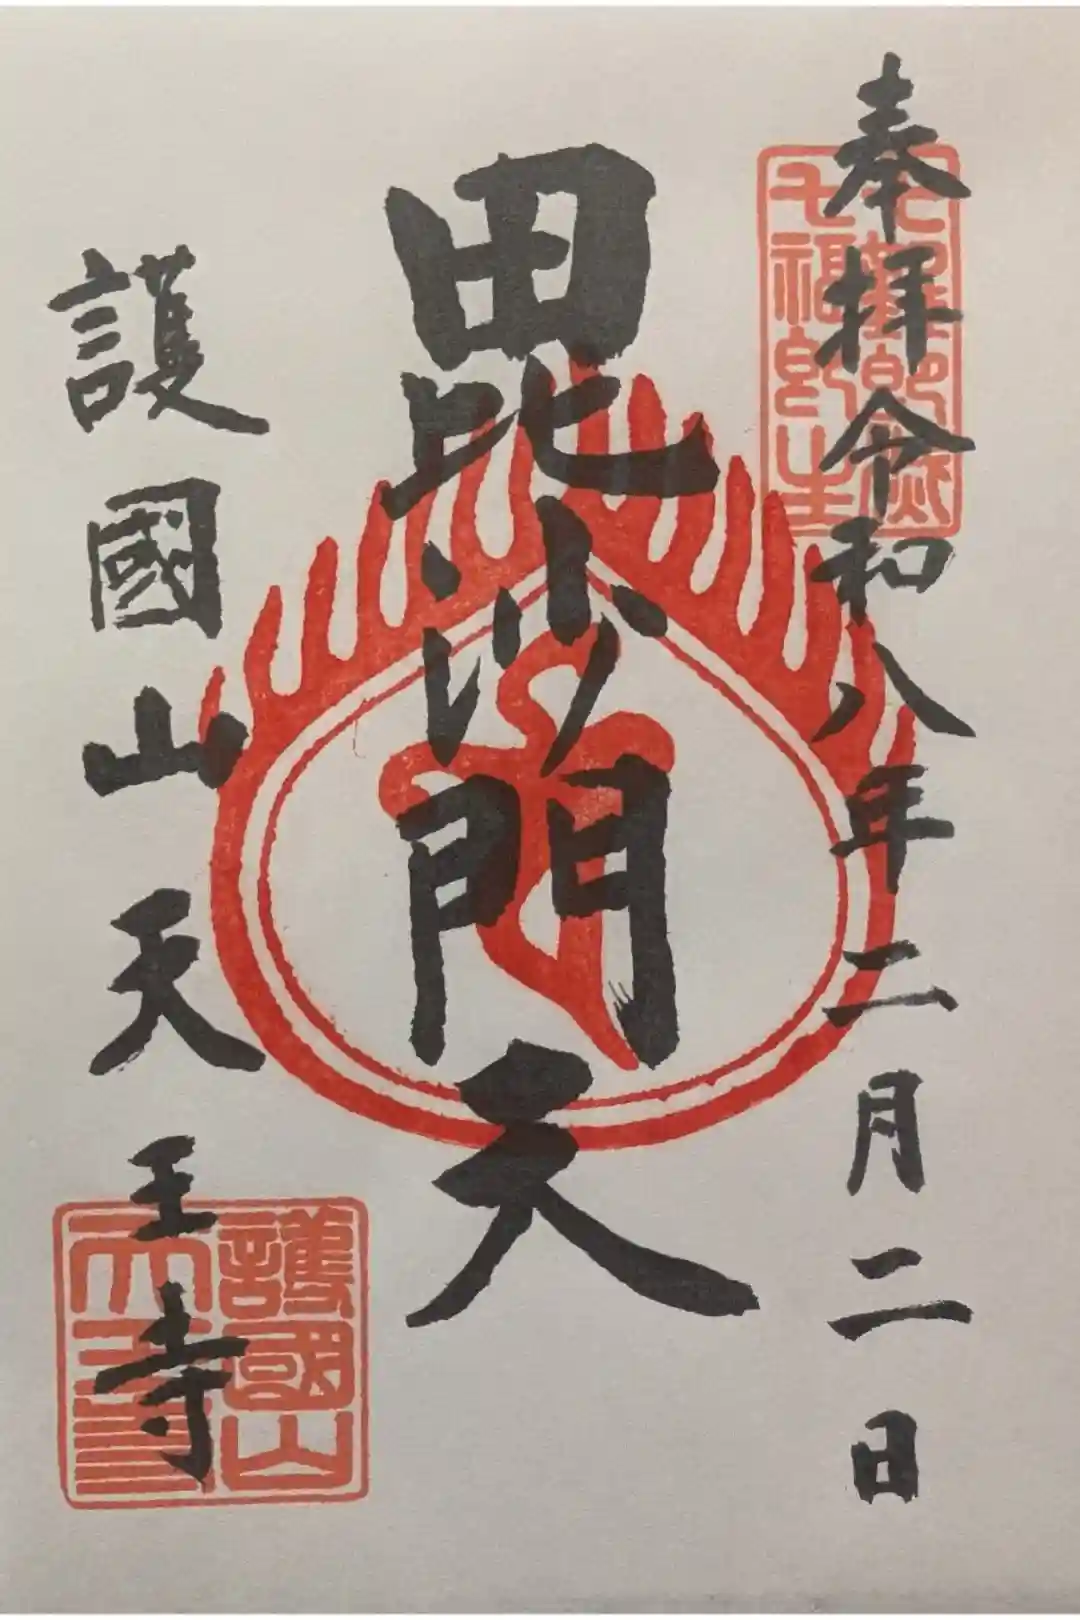 奉拝令和八年二月二日
毘沙門天
護國山天王寺
七即即
七福即生
護國山
天王寺